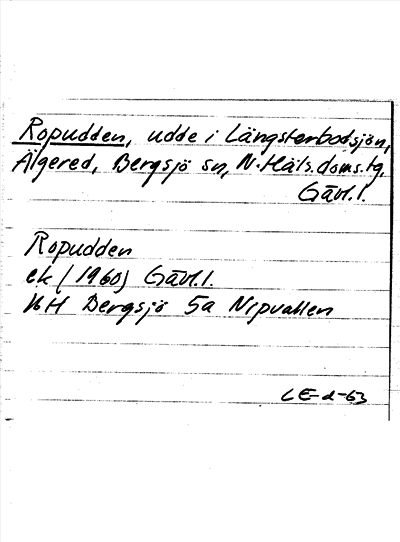 Ropudden, udde i Längsterbodsjön,
Älgered, Bergsjö sn, N. Häls. doms. tg.
Gävl. l.
Ropudden
ek (1960) Gävl. l.
16H Bergsjö 5a Nipvallen
LE-d-63